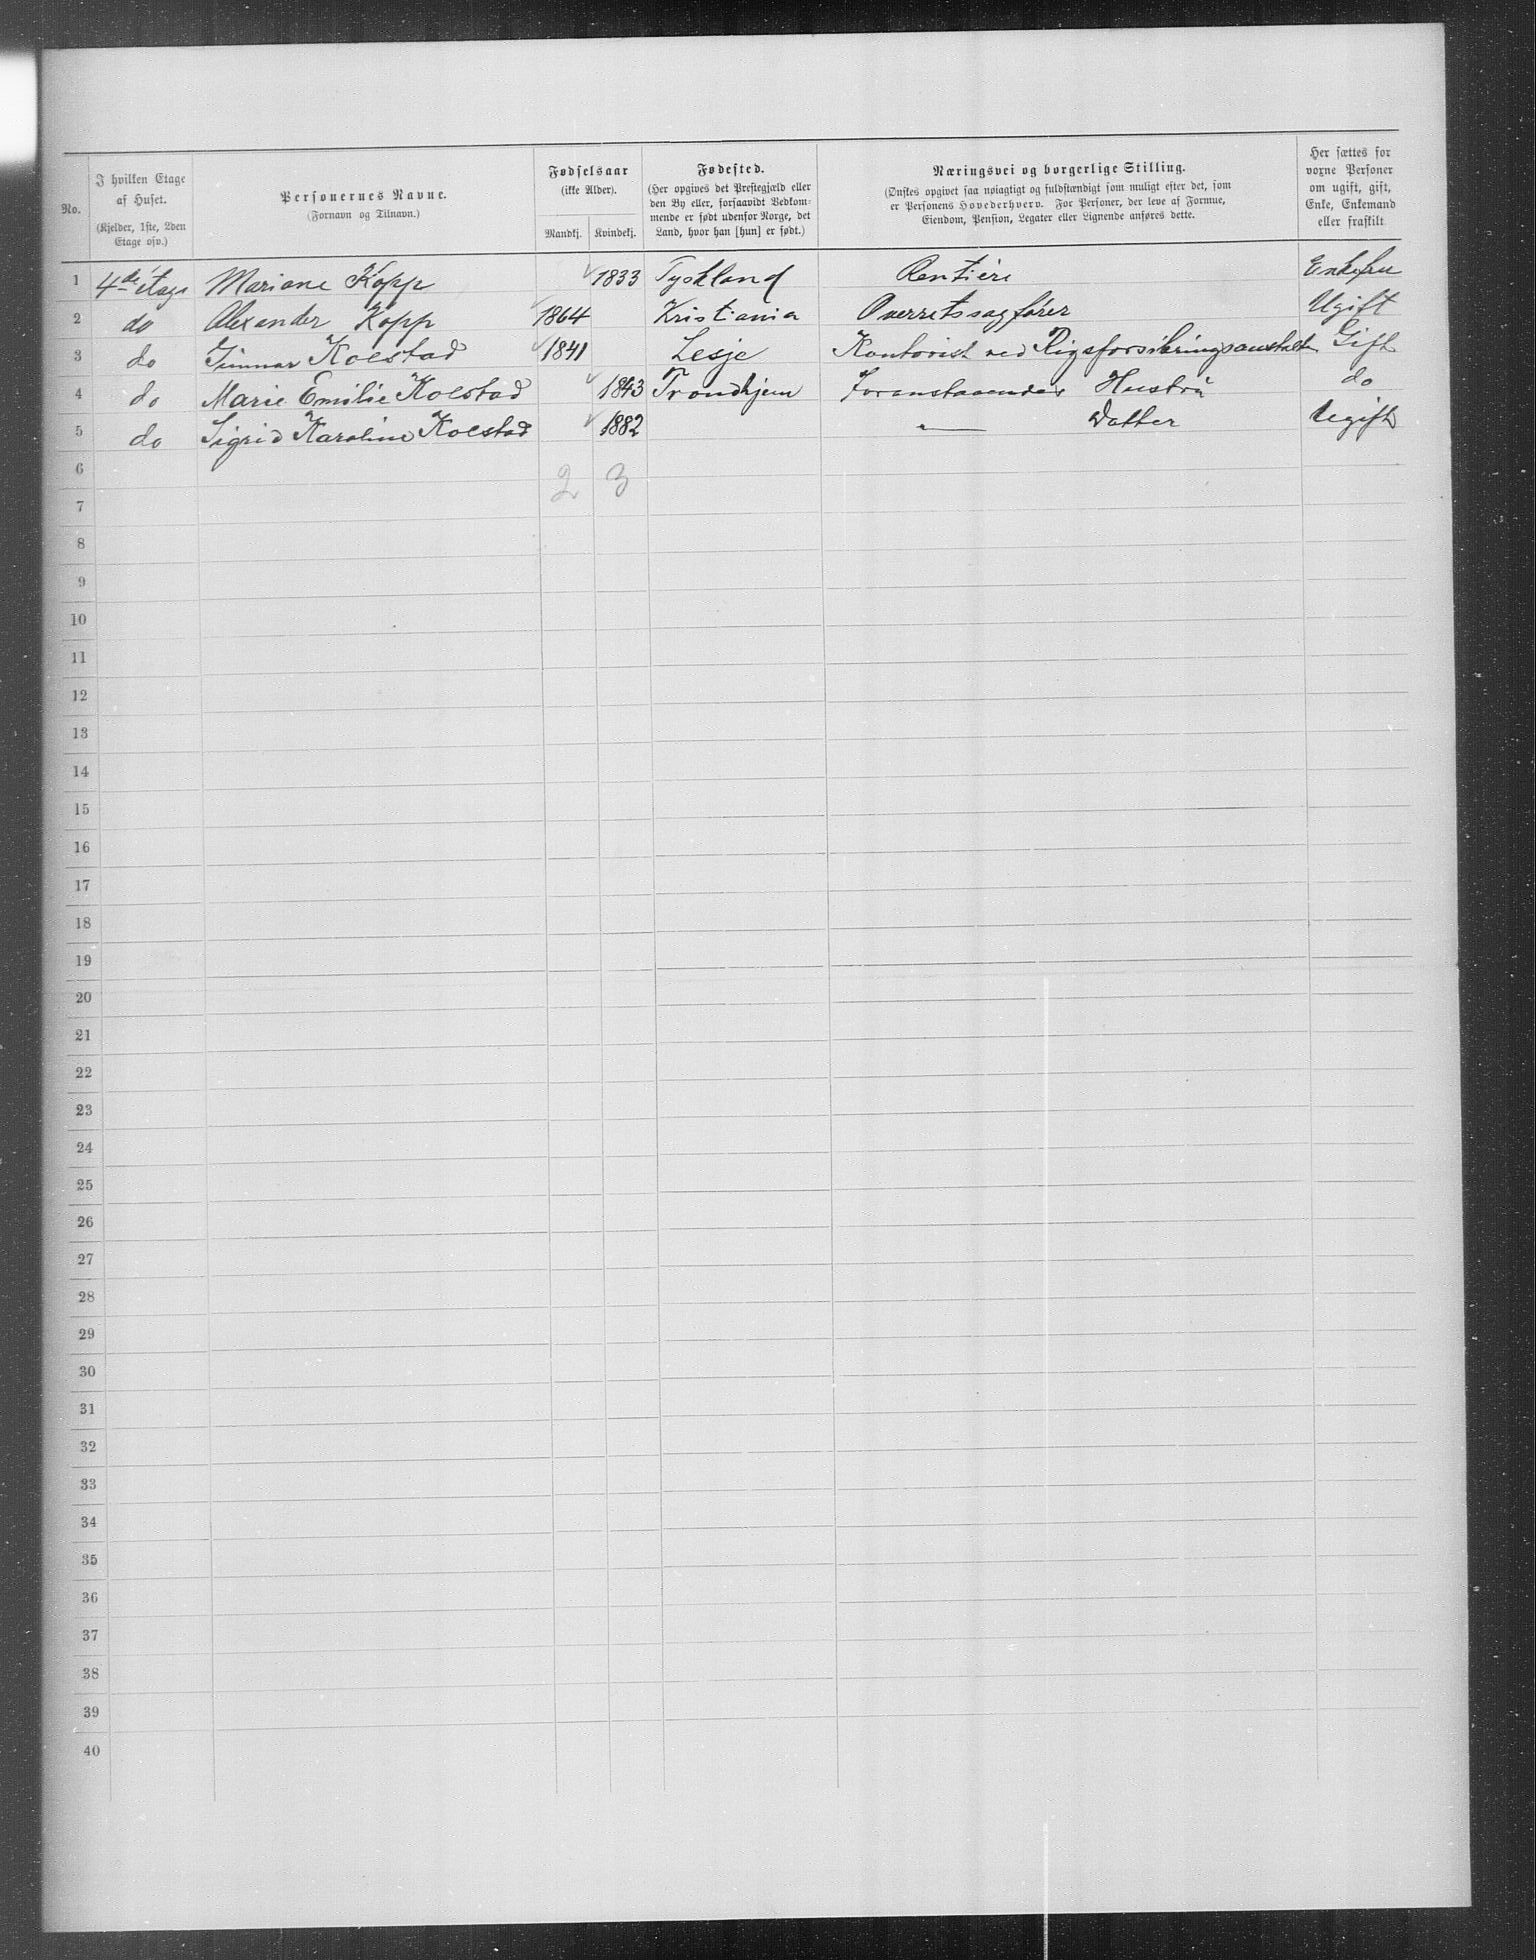 No.
I hvilken Etage
af Huset.
(Kjelder, 1ste, 2den
Etage osv.)
Personernes Navne.
(Fornavn og Tilnavn.)
Fødselsaar
(ikke Alder).
Mandkj. Kvindekj.
Fødested.
(Her opgives det Prestegjæld eller
den By eller, forsaavidt Vedkom-
mende er født udenfor Norge, det
Land, hvor han [hun] er født.)
Næringsvei og borgerlige Stilling.
(Ønskes opgivet saa nøiagtigt og fuldstændigt som muligt efter det, som
er Personens Hovederhverv. For Personer, der leve af Formue,
Eiendom, Pension, Legater eller Lignende anføres dette.
Her sættes for
vorne Personer
om ugift, gift,
Enke, Enkemand
eller fraskilt
1 4de Etage Mariane Kopp 1833 Tyskland Rentière Enkefru
2 do Alexander Kopp 1864 Kristiania Overretssagfører Ugift
3 do Gunnar Kolstad 1841 Lesje Kontorist ved Rigsforsikringsanstalten Gift
4 do Marie Emilie Kolstad 1843 Trondhjem Foranstaaendes Hustrü do
5 do Sigrid Karoline Kolstad 1882 — Datter Ugift
6
2 3
7
8
9
10
11
12
13
14
15
16
17
18
19
20
21
22
23
24
25
26
27
28
29
30
31
32
33
34
35
36
37
38
39
40